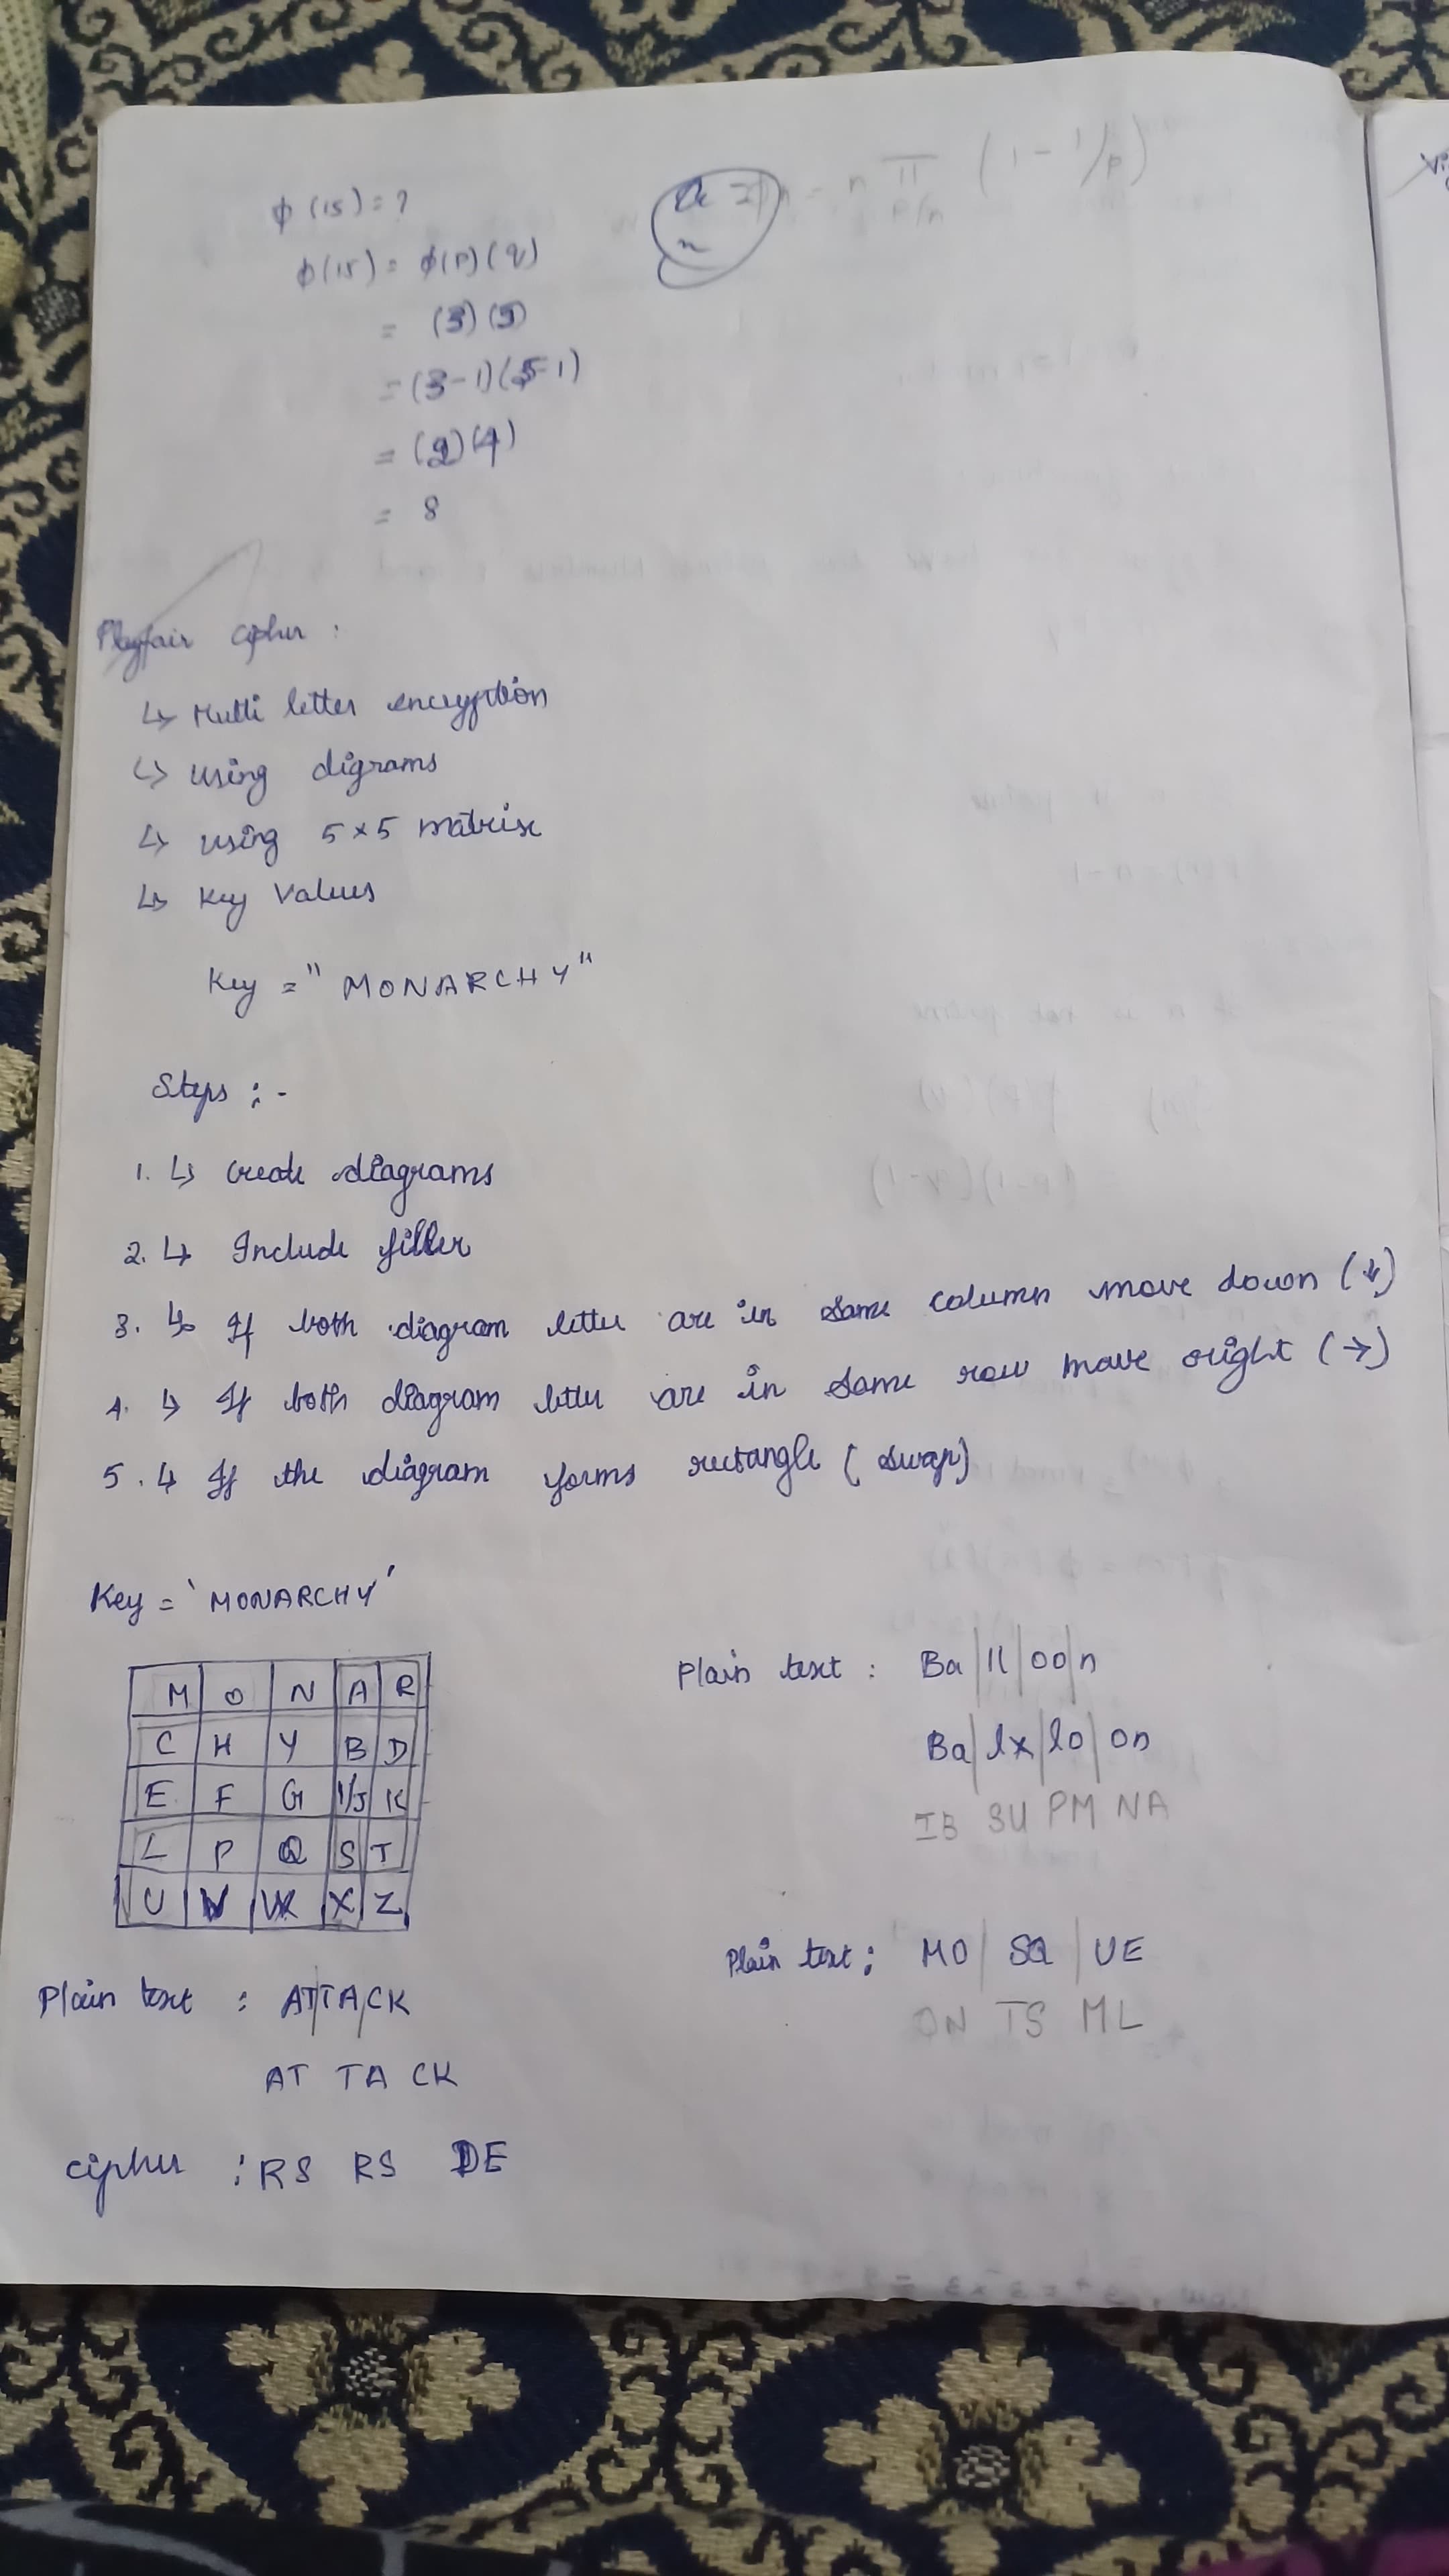 ϕ(15) = ?
ϕ(15) = ϕ(P)(q)
= (3)(5)
= (3-1)(5-1)
= (2)(4)
= 8
n π (1 - 1/p)
P/n
Playfair cipher :
↳ Multi letter encryption
↳ using digrams
↳ using 5×5 matrix
↳ Key Values
Key = "MONARCHY"
Steps :-
1. ↳ create diagrams
2. ↳ Include filler
3. ↳ If both diagram letter are in same column move down (↓)
4. ↳ If both diagram letter are in same row move right (→)
5. ↳ If the diagram forms rectangle (swap)
Key = 'MONARCHY'
M O N A R
C H Y B D
E F G I/J K
L P Q S T
U V W X Z
Plain text : Ba|ll|oo|n
Ba|lx|lo|on
IB SU PM NA
Plain text : MO| SQ |UE
ON TS ML
Plain text : AT|TA|CK
AT TA CK
cipher : RS RS DE